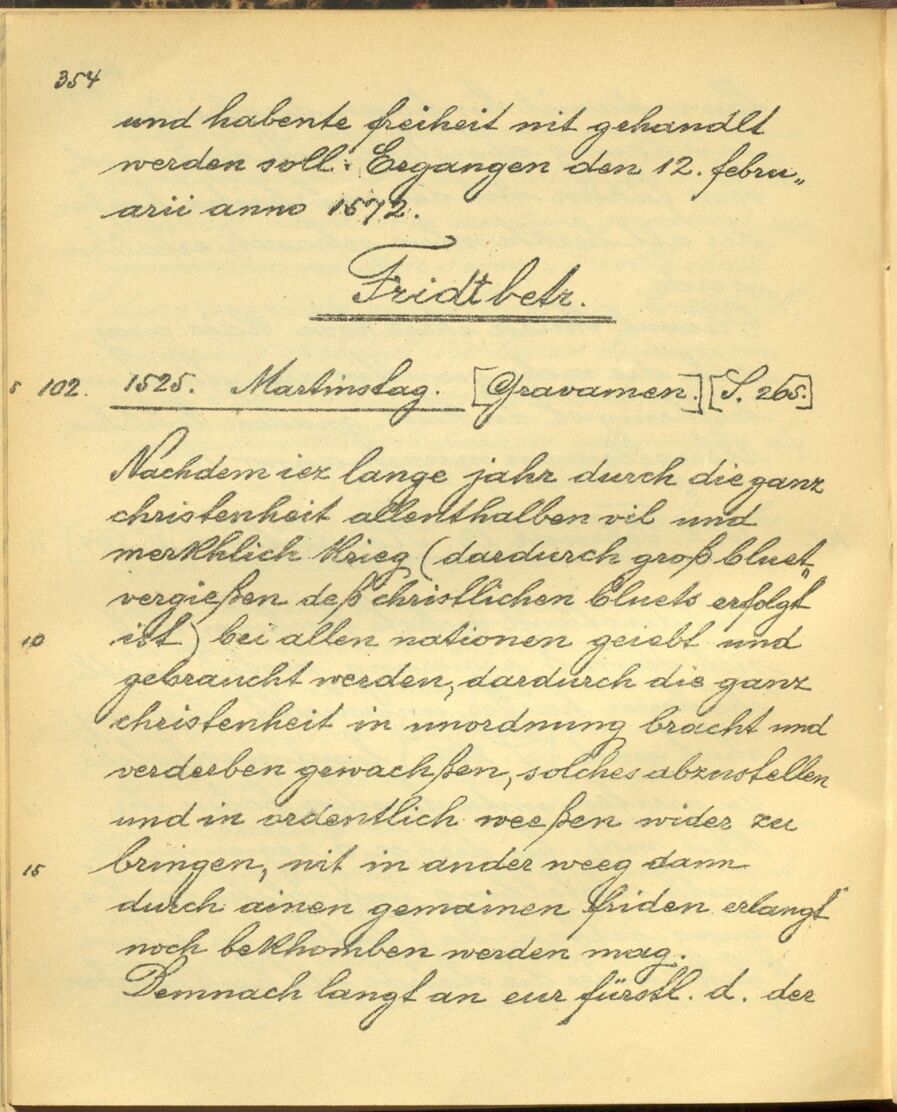 354
und habente freiheit nit gehandlt
werden soll: Ergangen den 12. febru„
arii anno 1572.
Fridtbetr.
5 102. 1525. Martinstag. [Gravamen.] [S. 265.]
Nachdem iez lange jahr durch die ganz
christenheit allenthalben vil und
merkhlich krieg (dardurch groß bluet„
vergießen deß christlichen bluets erfolgt
10 ist) bei allen nationen geiebt und
gebraucht werden, dardurch die ganz
christenheit in unordnung bracht und
verderben gewachßen, solches abzustellen
und in ordentlich weeßen wider zu
15 bringen, nit in ander weeg dann
durch ainen gemainen friden erlangt
noch bekhomben werden mag.
Demnach langt an eur fürstl. d. der